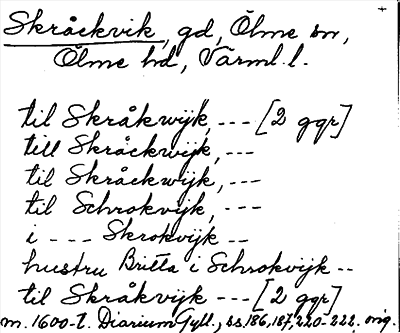 Skråckvik, gd, Ölme sn,
Ölme hd, Värml. l.
til Skråkwijk, --- [2 ggr]
till Skråckwijk, ---
til Skråckwijk, ---
til Schrokvijk, ---
i --- Skrokvijk --
hustru Britta i Schrokvijk --
til Skråkvijk --- [2 ggr]
m. 1600-t. Diarium Gyll., ss. 186, 187, 220-222. orig.